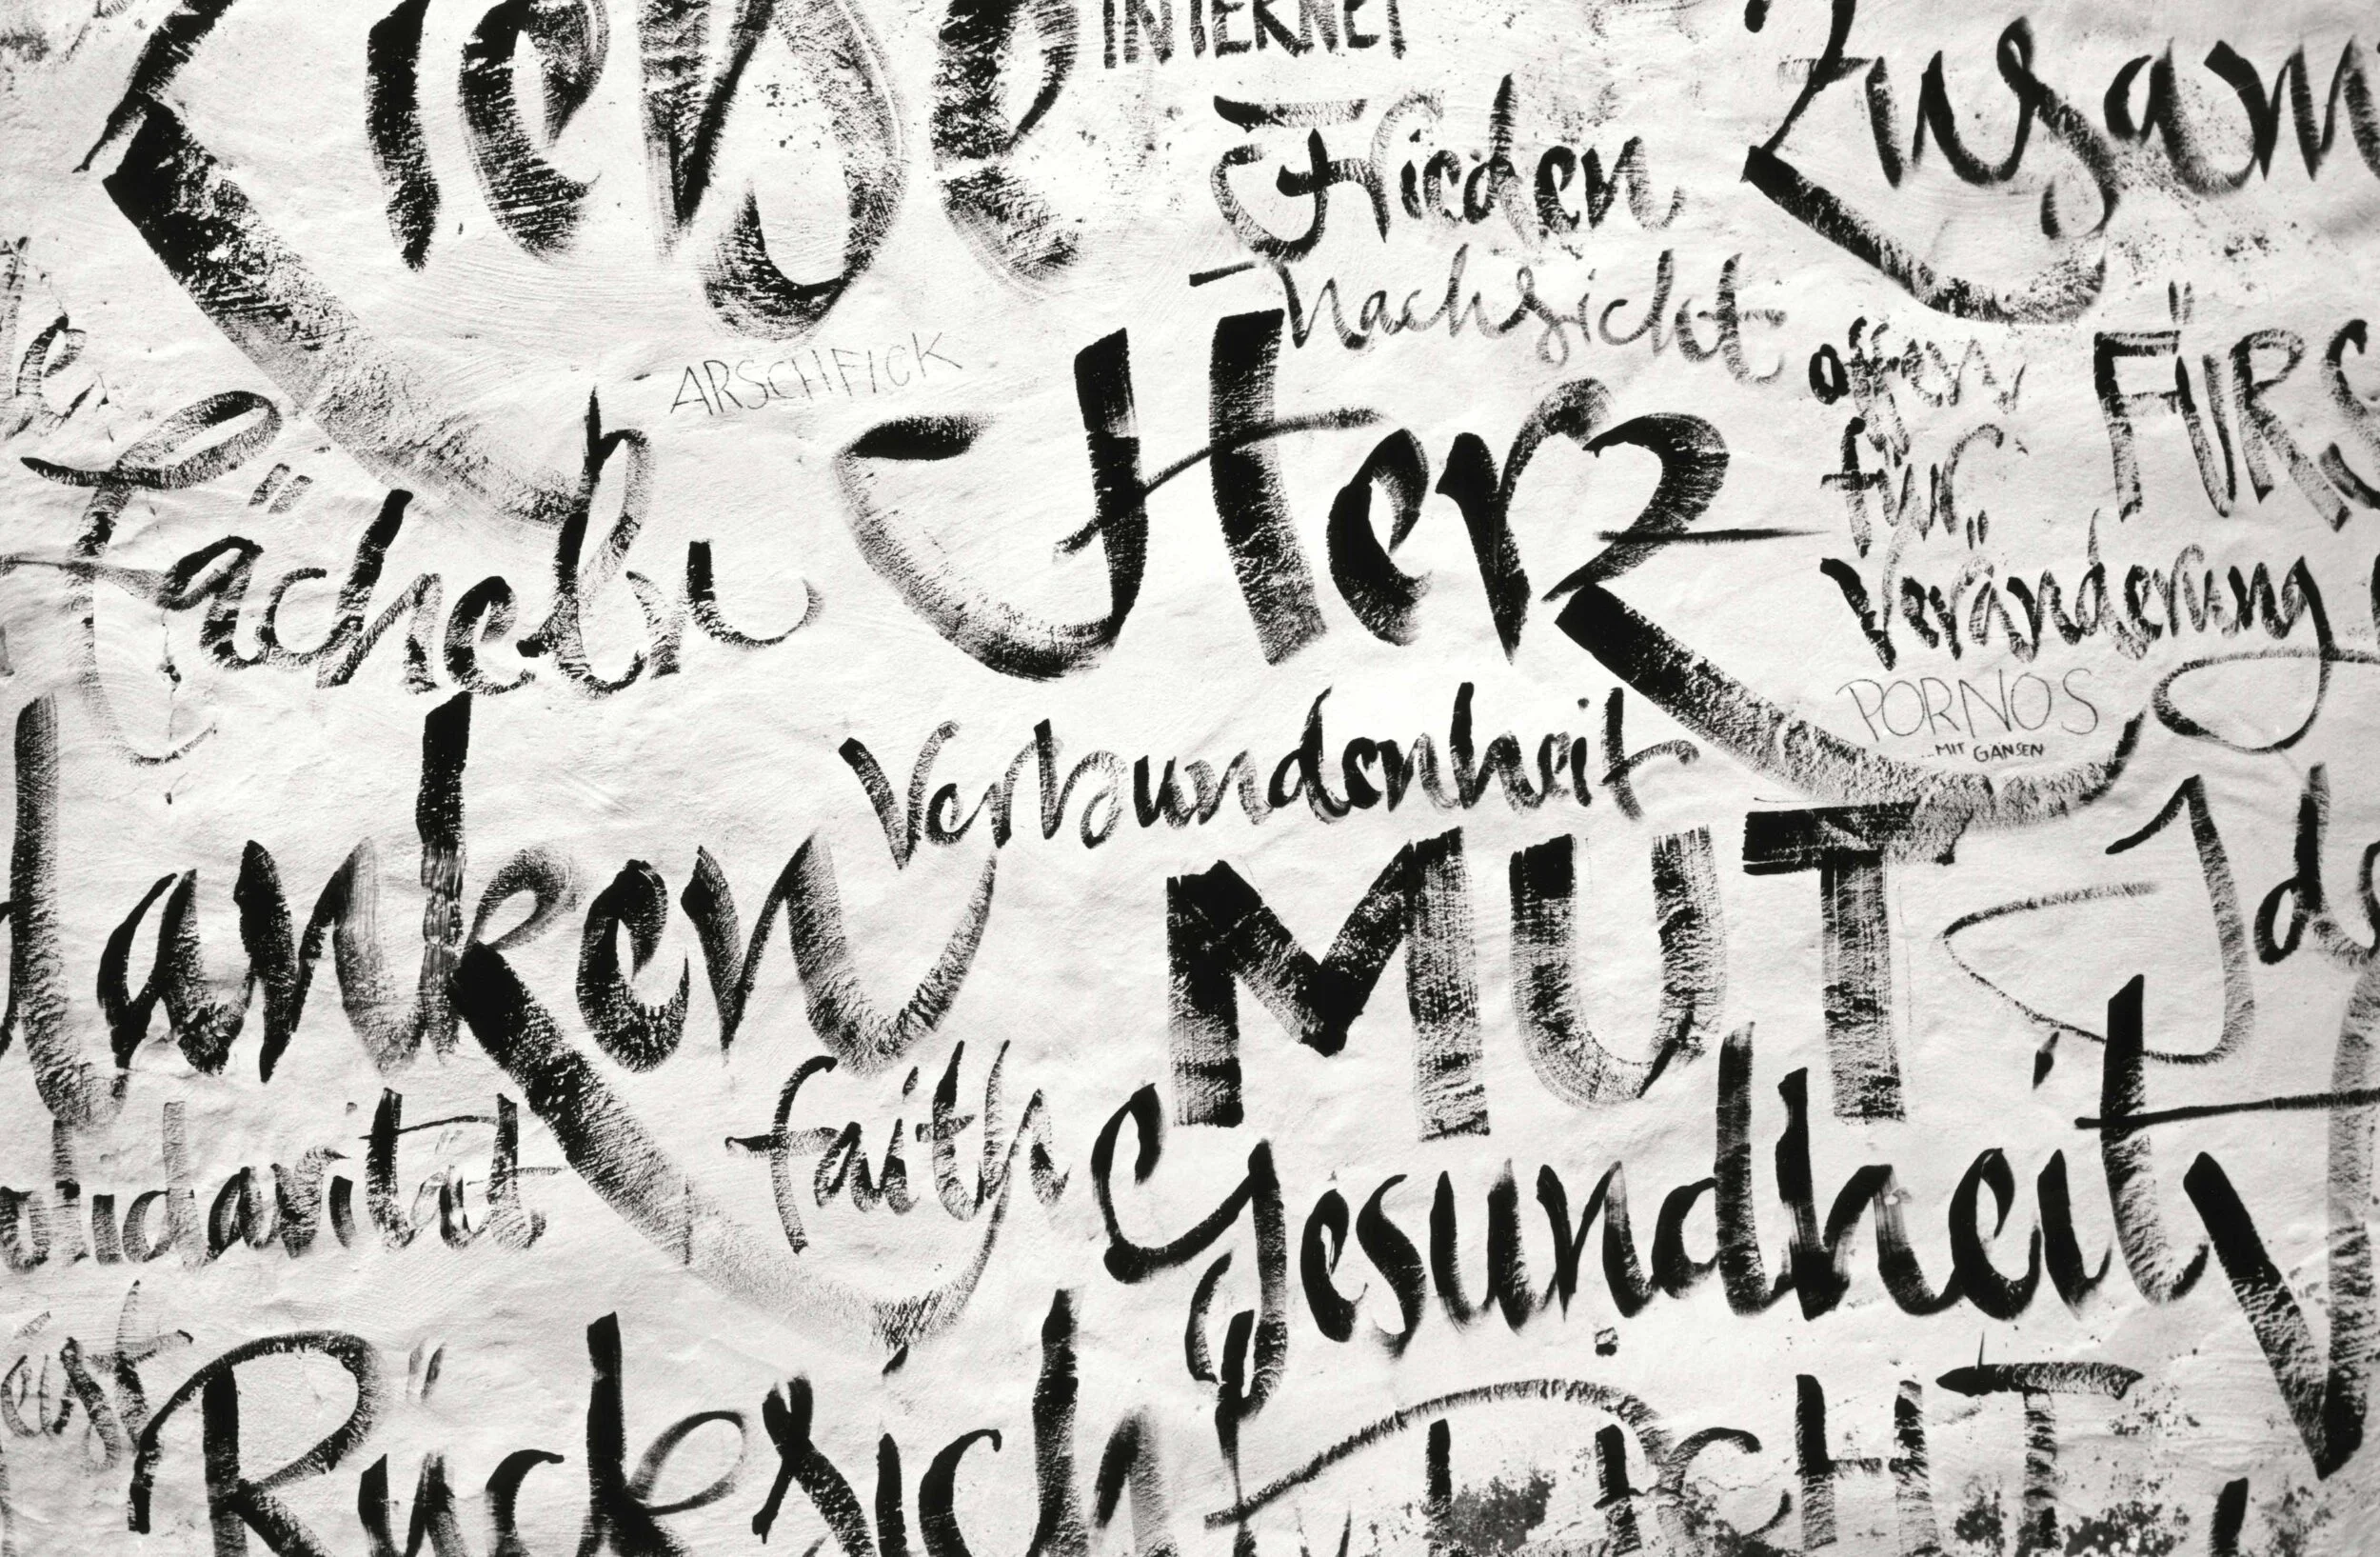 Liebe
INTERNET
Zusam
Frieden
Nachsicht
ARSCHFICK
Herz
offen
für
Veränderung
FÜRS
Lächeln
PORNOS
...MIT GANSEN
Verbundenheit
danken
MUT
Ide
faith
olidarität
Gesundheit
Rücksich